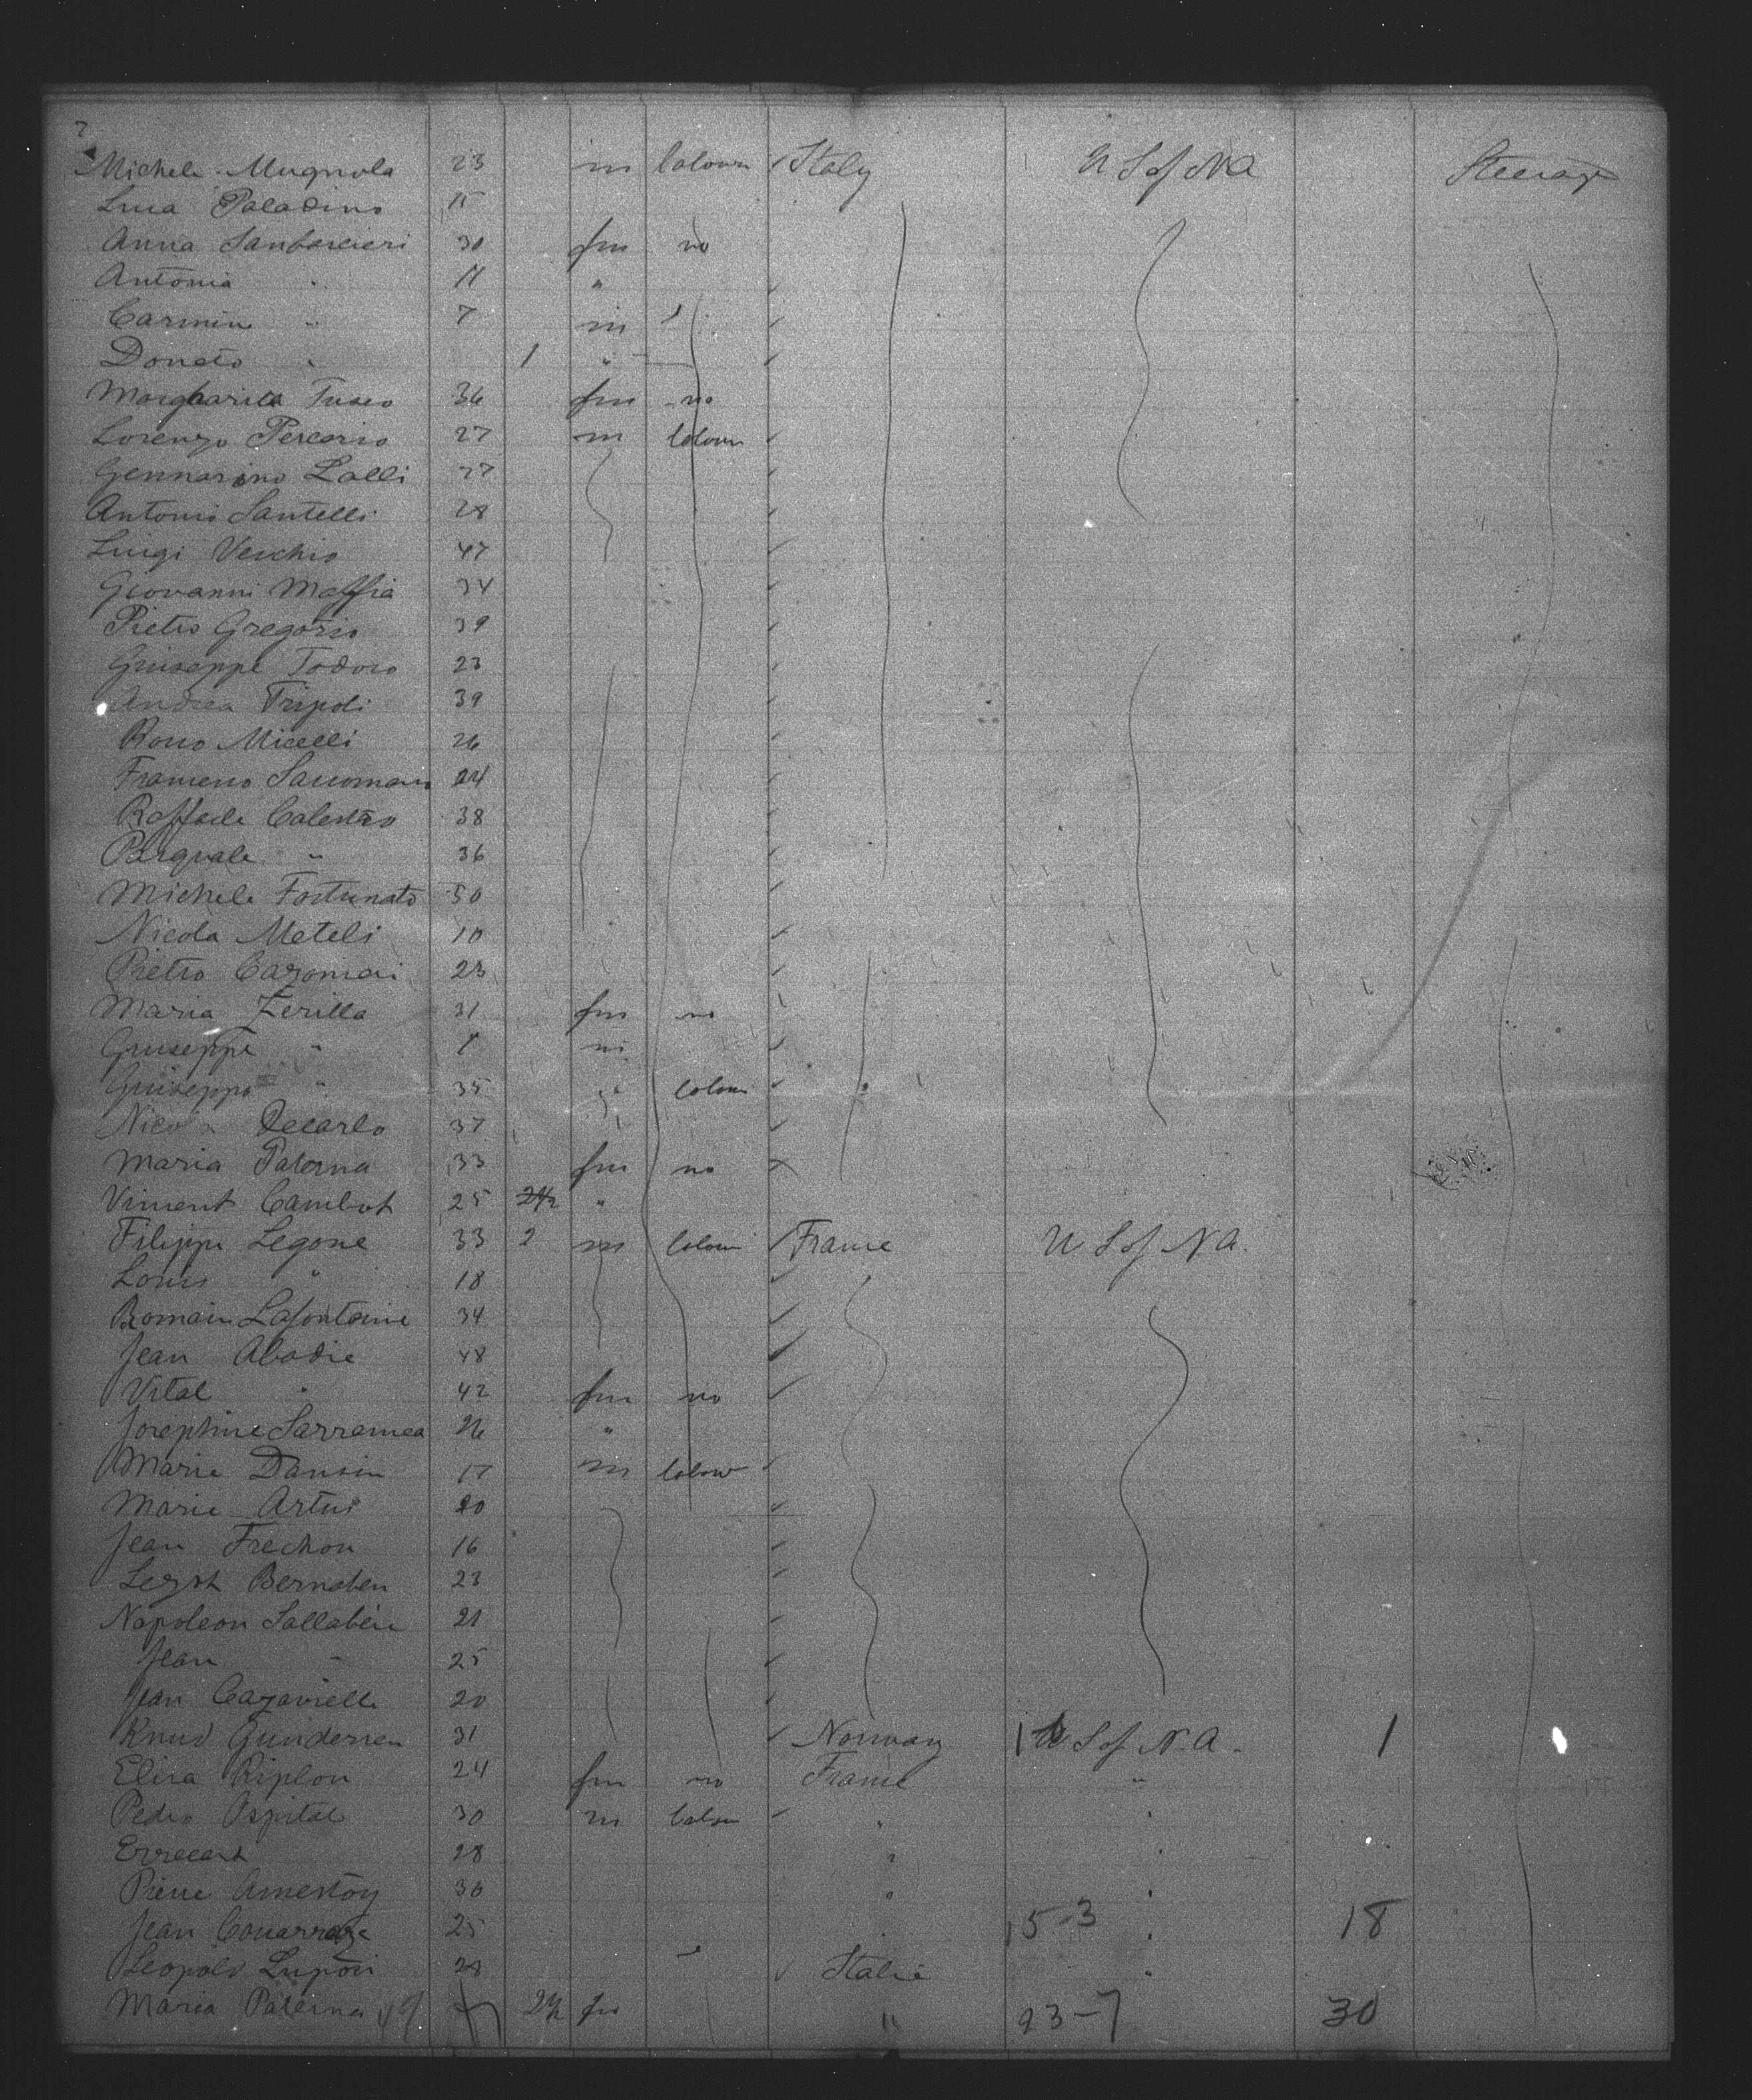 Michele Mugnola 23 m labourer Italy U S of N A Steerage
Luca Paladino 15
Anna Sanbarcieri 30 fm no
Antonia " 11 "
Carmin " 7 m
Donato " 1 "
Margharita Fusco 36 fm no
Lorenzo Percario 27 m labour
Gennarino Lalli 27
Antonio Santelli 28
Luigi Vecchio 47
Giovanni Maffia 34
Pietro Gregorio 39
Giuseppe Todoro 23
Andrea Tripoli 39
Rocco Micelli 26
Francesco Saccomano 24
Raffaele Calestro 38
Pasquale " 36
Michele Fortunato 50
Nicola Meteli 10
Pietro 23
Maria Zerilla 31 fm no
Giuseppe " m
Giuseppe " 35 labour
Nicola Decarlo 37
Maria Paterna 33 fm no
Vincent Cambot 25 "
Filippe Legone 33 2 m labour France U S of N A.
Louis " 18
Romain Lafontaine 34
Jean Abadie 48
Vital " 42 fm no
Josephine Sarramea 26 "
Marie Dansin 17 m labour
Marie Artus 20
Jean Frechon 16
Bernaten 23
Napoleon Sallabere 21
Jean " 25
Jean Cazavielle 20
Knud Gundersen 31 Norway 1 U S of N. A. 1
Elisa Riplon 24 fm no France "
Pedro Ospital 30 m labour " "
Errecart 28 " "
Pierre Amestoy 30 " "
Jean Couarraze 25 15-3 " 18
Leopold Lupori 28 Italie "
Maria Paterna 2½ fm " 23-7 30